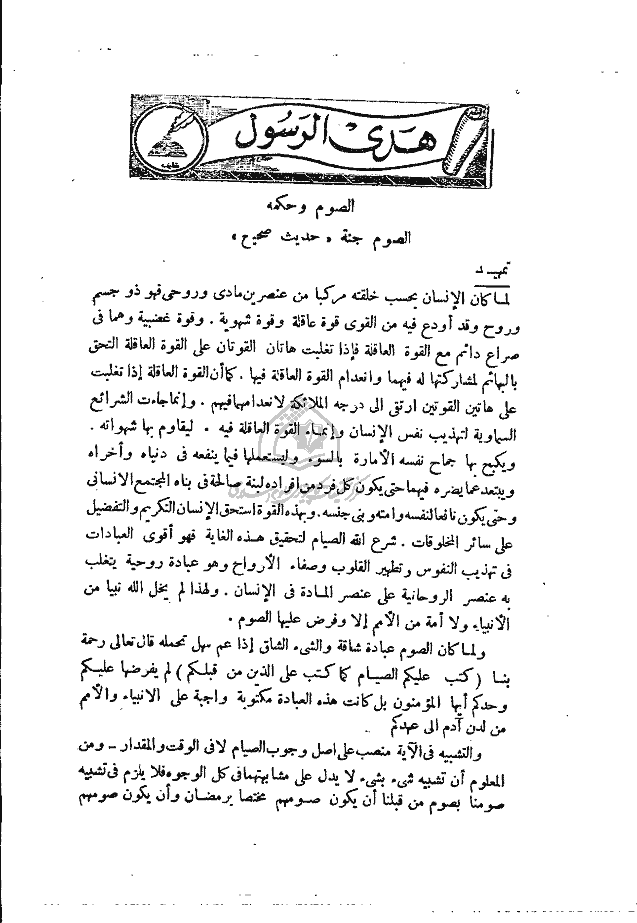 هدى الرسول
الصوم وحكمه
الصوم جنة « حديث صحيح »
تمهيد
لما كان الإنسان بحسب خلقته مركبا من عنصرين مادى وروحى فهو ذو جسم
وروح وقد أودع فيه من القوى قوة عاقلة وقوة شهوية . وقوة غضبية وهما فى
صراع دائم مع القوة العاقلة فإذا تغلبت هاتان القوتان على القوة العاقلة التحق
بالبهائم لمشاركتها له فيهما وانعدام القوة العاقلة فيها . كما أن القوة العاقلة إذا تغلبت
على هاتين القوتين ارتقى الى درجه الملائكة لانعدامهما فيهم . وإنما جاءت الشرائع
السماوية لتهذيب نفس الإنسان وإنماء القوة العاقلة فيه . ليقاوم بها شهواته .
ويكبح بها جماح نفسه الأمارة بالسوء وليستعملها فيما ينفعه فى دنياه وأخراه
ويبتعد عما يضره فيهما حتى يكون كل فرد من افراده لبنة صالحة فى بناء المجتمع الانسانى
وحتى يكون نافعا لنفسه وامته وبنى جنسه . وبهذه القوة استحق الإنسان التكريم والتفضيل
على سائر المخلوقات . شرع الله الصيام لتحقيق هذه الغاية فهو أقوى العبادات
فى تهذيب النفوس وتطهير القلوب وصفاء الأرواح وهو عبادة روحية يتغلب
به عنصر الروحانية على عنصر المادة فى الإنسان . ولهذا لم يخل الله نبيا من
الأنبياء ولا أمة من الأمم إلا وفرض عليها الصوم .
ولما كان الصوم عبادة شاقة والشىء الشاق إذا عم سهل تحمله قال تعالى رحمة
بنا ( كتب عليكم الصيام كما كتب على الذين من قبلكم ) لم يفرضها عليكم
وحدكم أيها المؤمنون بل كانت هذه العبادة مكتوبة واجبة على الانبياء والأمم
من لدن آدم الى عهدكم
والتشبيه فى الآية منصب على اصل وجوب الصيام لا فى الوقت والمقدار – ومن
المعلوم أن تشبيه شىء بشىء لا يدل على مشابهتهما فى كل الوجوه فلا يلزم فى تشبيه
صومنا بصوم من قبلنا أن يكون صومهم مختصا برمضان وأن يكون صومهم